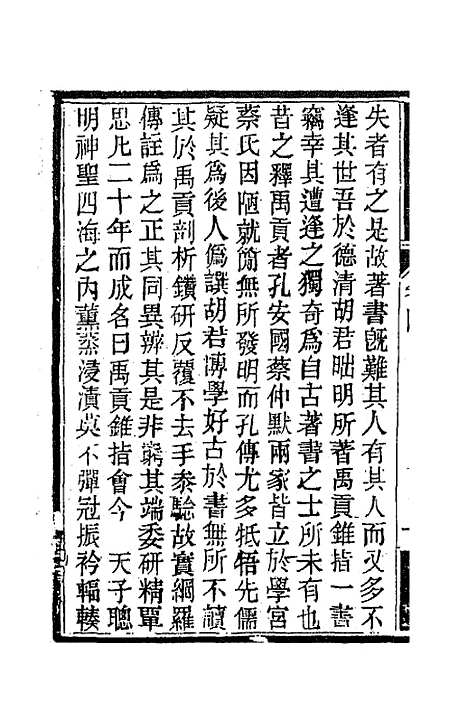 失者有之是故著書旣難其人有其人而又多不
逢其世吾於德清胡君朏明所著禹貢錐指一書
竊幸其遭逢之獨奇爲自古著書之士所未有也
昔之釋禹貢者孔安國蔡仲默兩家皆立於學宮
蔡氏因陋就簡無所發明而孔傳尤多抵牾先儒
疑其爲後人僞譔胡君博學好古於書無所不讀
其於禹貢剖析鑽研反覆不去手泰驗故實綱羅
傳註爲之正其同異辨其是非窮其端委硏精單
思凡二十年而成名曰禹貢錐指會今　天子聰
明神聖四海之內薰蒸浸漬莫不彈冠振衿輻輳